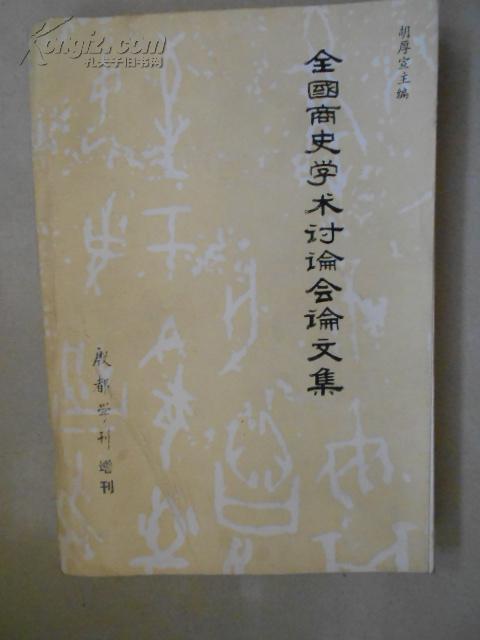 胡厚宣主编
全國商史学术讨論会論文集
殷都学刊增刊
Kongfz.com
孔夫子旧书网